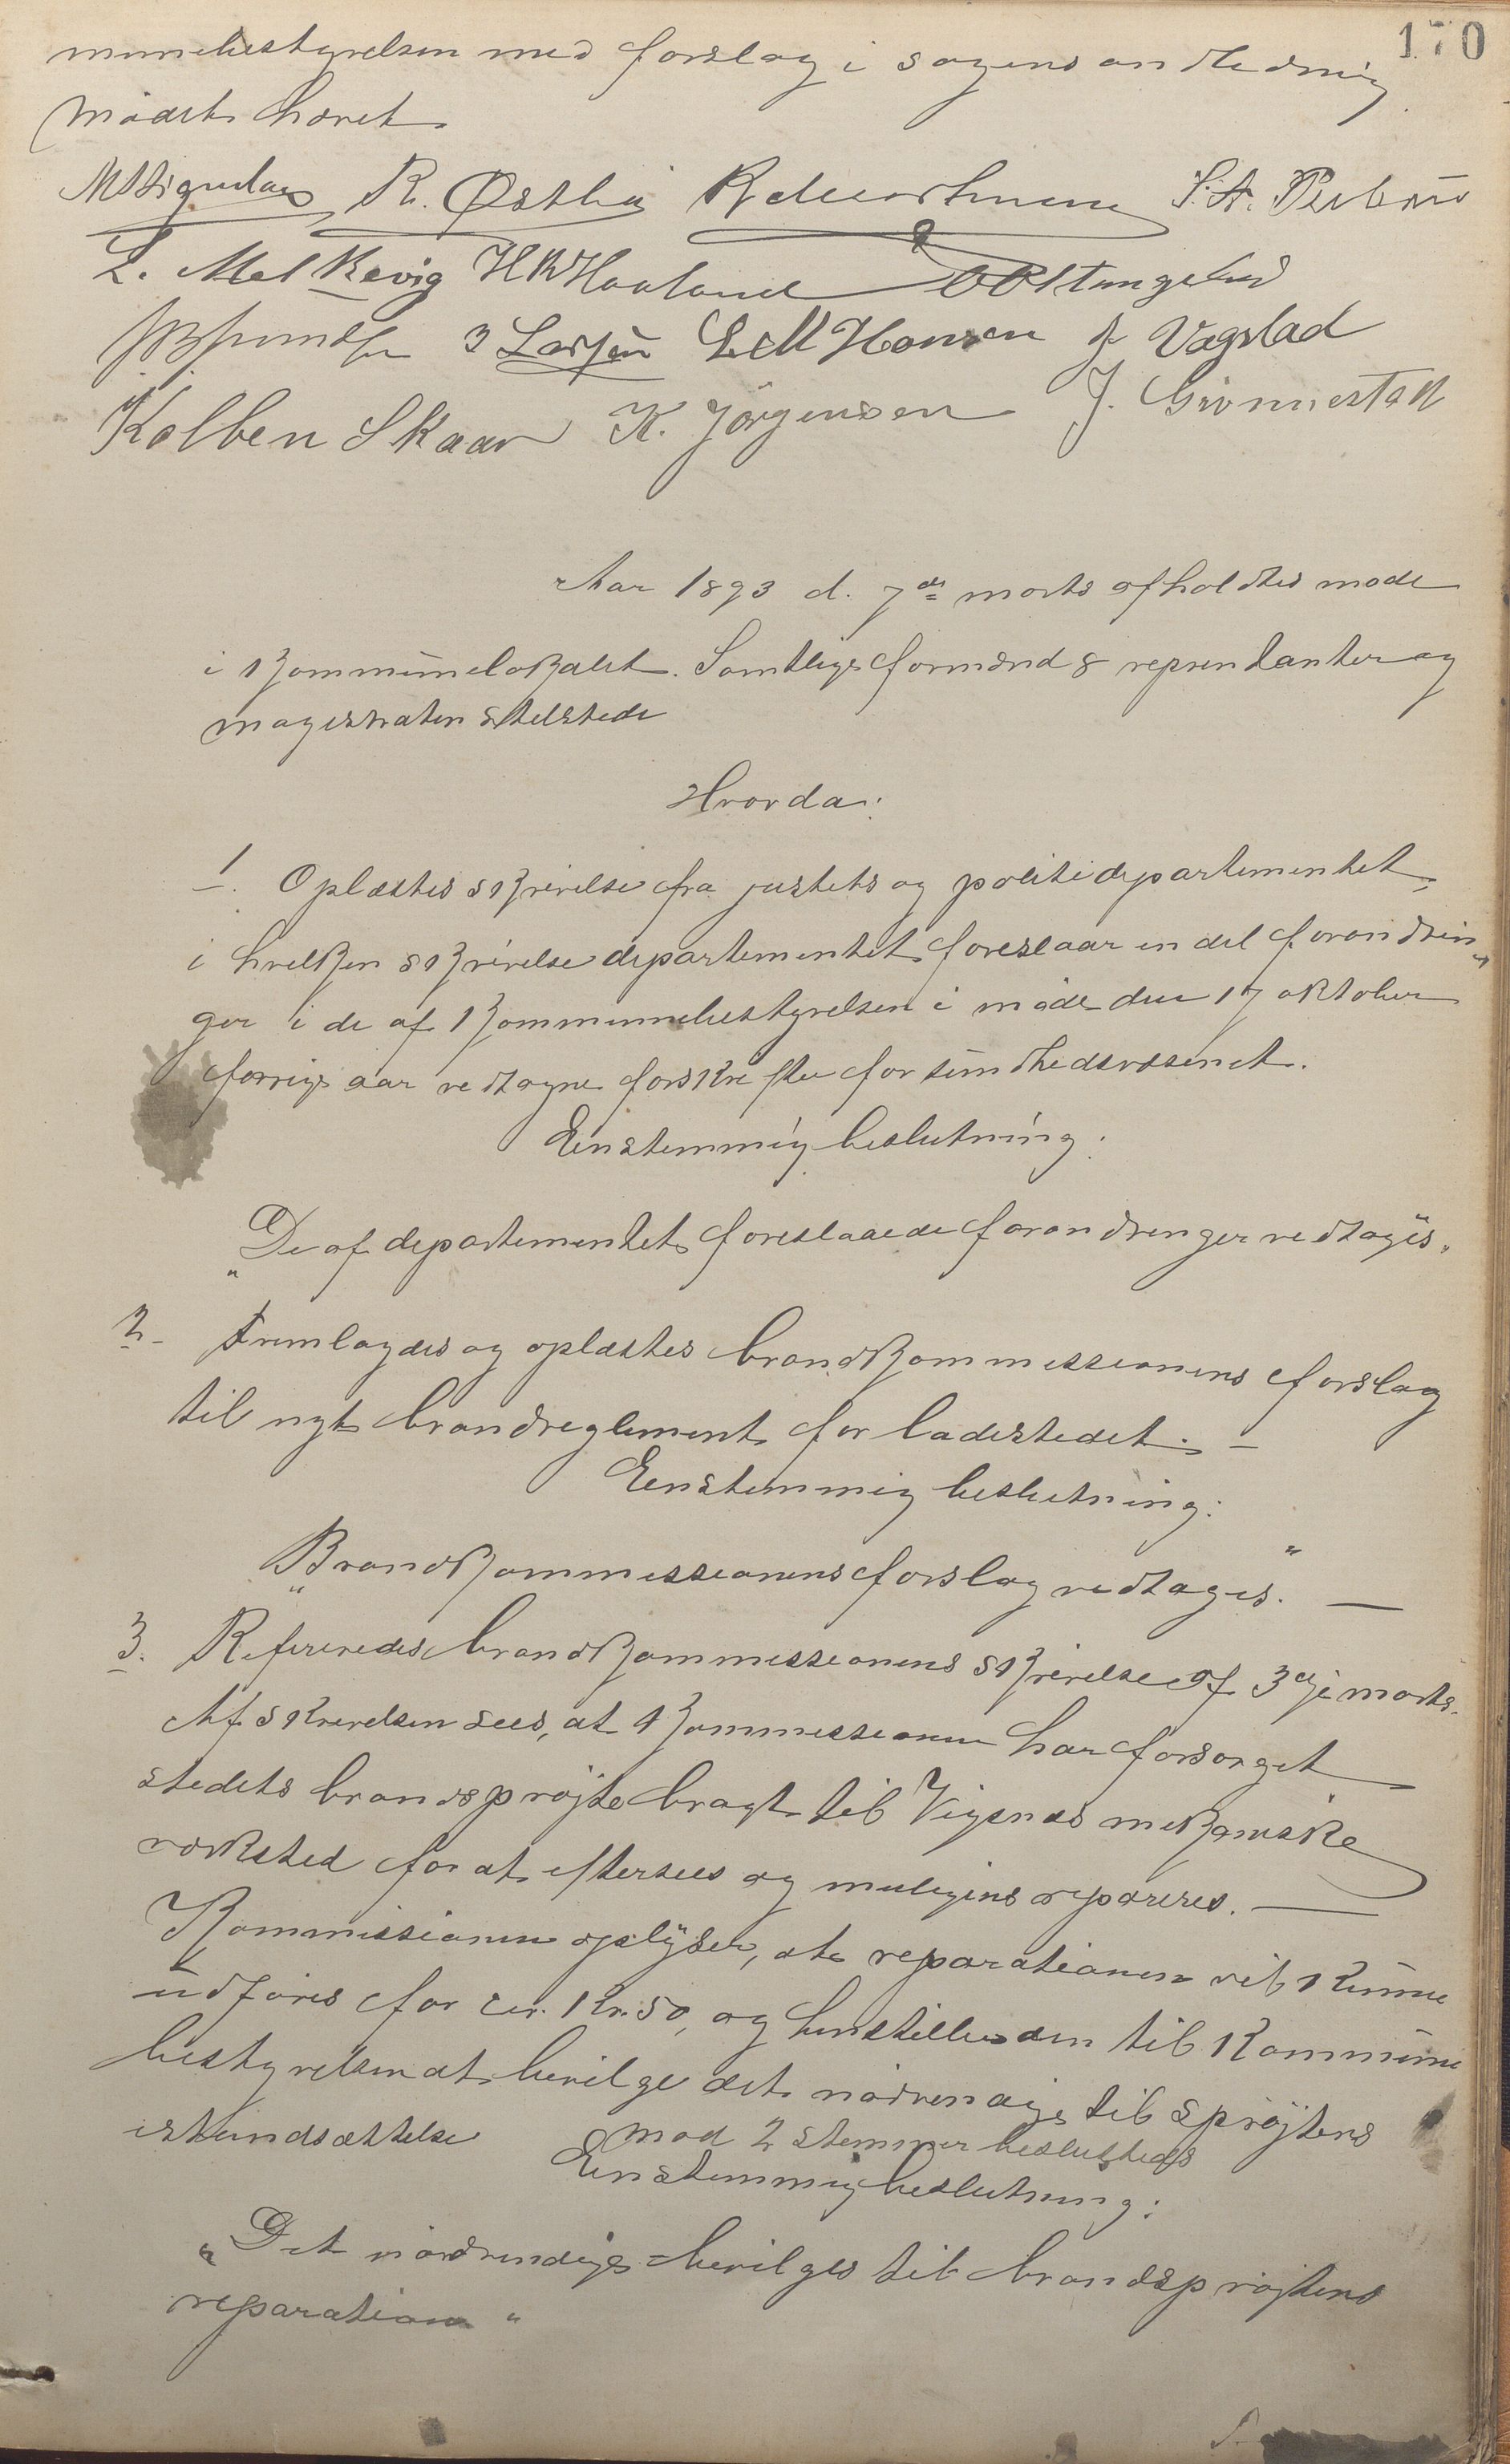 170
munebestyrelsen med forslag i sagens andledning
Mødet hævet
R. Østhu S. A.
L. Melkevig H M Haaland O O Stangeland
Larsen E M Hansen J Vagslad
Kolben Skaar K. Jörgensen J. Grönnestad
Aar 1893 d. 7de marts afholdtes møde
i kommunelokalet. Samtlige formænd & reprentanter og
magistraten tilstede
Hvorda:
1. Oplæstes skrivelse fra justets og politidepartementet,
i hvelken skrivelse departementet foreslaar en del forandrin-
ger i de af kommunnebestyrelsen i møde den 17 oktober
forrige aar vedtagne forskrefter for sundhedsvæsenet.
Eenstemmig beslutning:
"De af departementet foreslaaede forandringer vedtages."
2- Fremlagdes og oplæstes brandkommessionens forslag
til nyt brandreglement for ladestedet. -
Eenstemmig beslutning:
"Brandkommessionens forslag vedtages." —
3. Refereredes brandkommessionens skrivelse af 3dje marts.
Af skrivelsen sees, at kommessionen har forsørget
stedets brandsprøjte bragt til Vigsnæs mekaniske
værksted for at eftersees og muligens repareres. —
Kommissionen oplyser, at reparationen vil kunne
udføres for cir. Kr. 50, og henstilles den til kommune
bestyrelsen at bevilge det nødvendige til sprøjtens
istandsættelse
mod 2 stemmer besluttedes
Eenstemmig beslutning:
"Det nødvendige bevilges til brandsprøjtens
reparation"